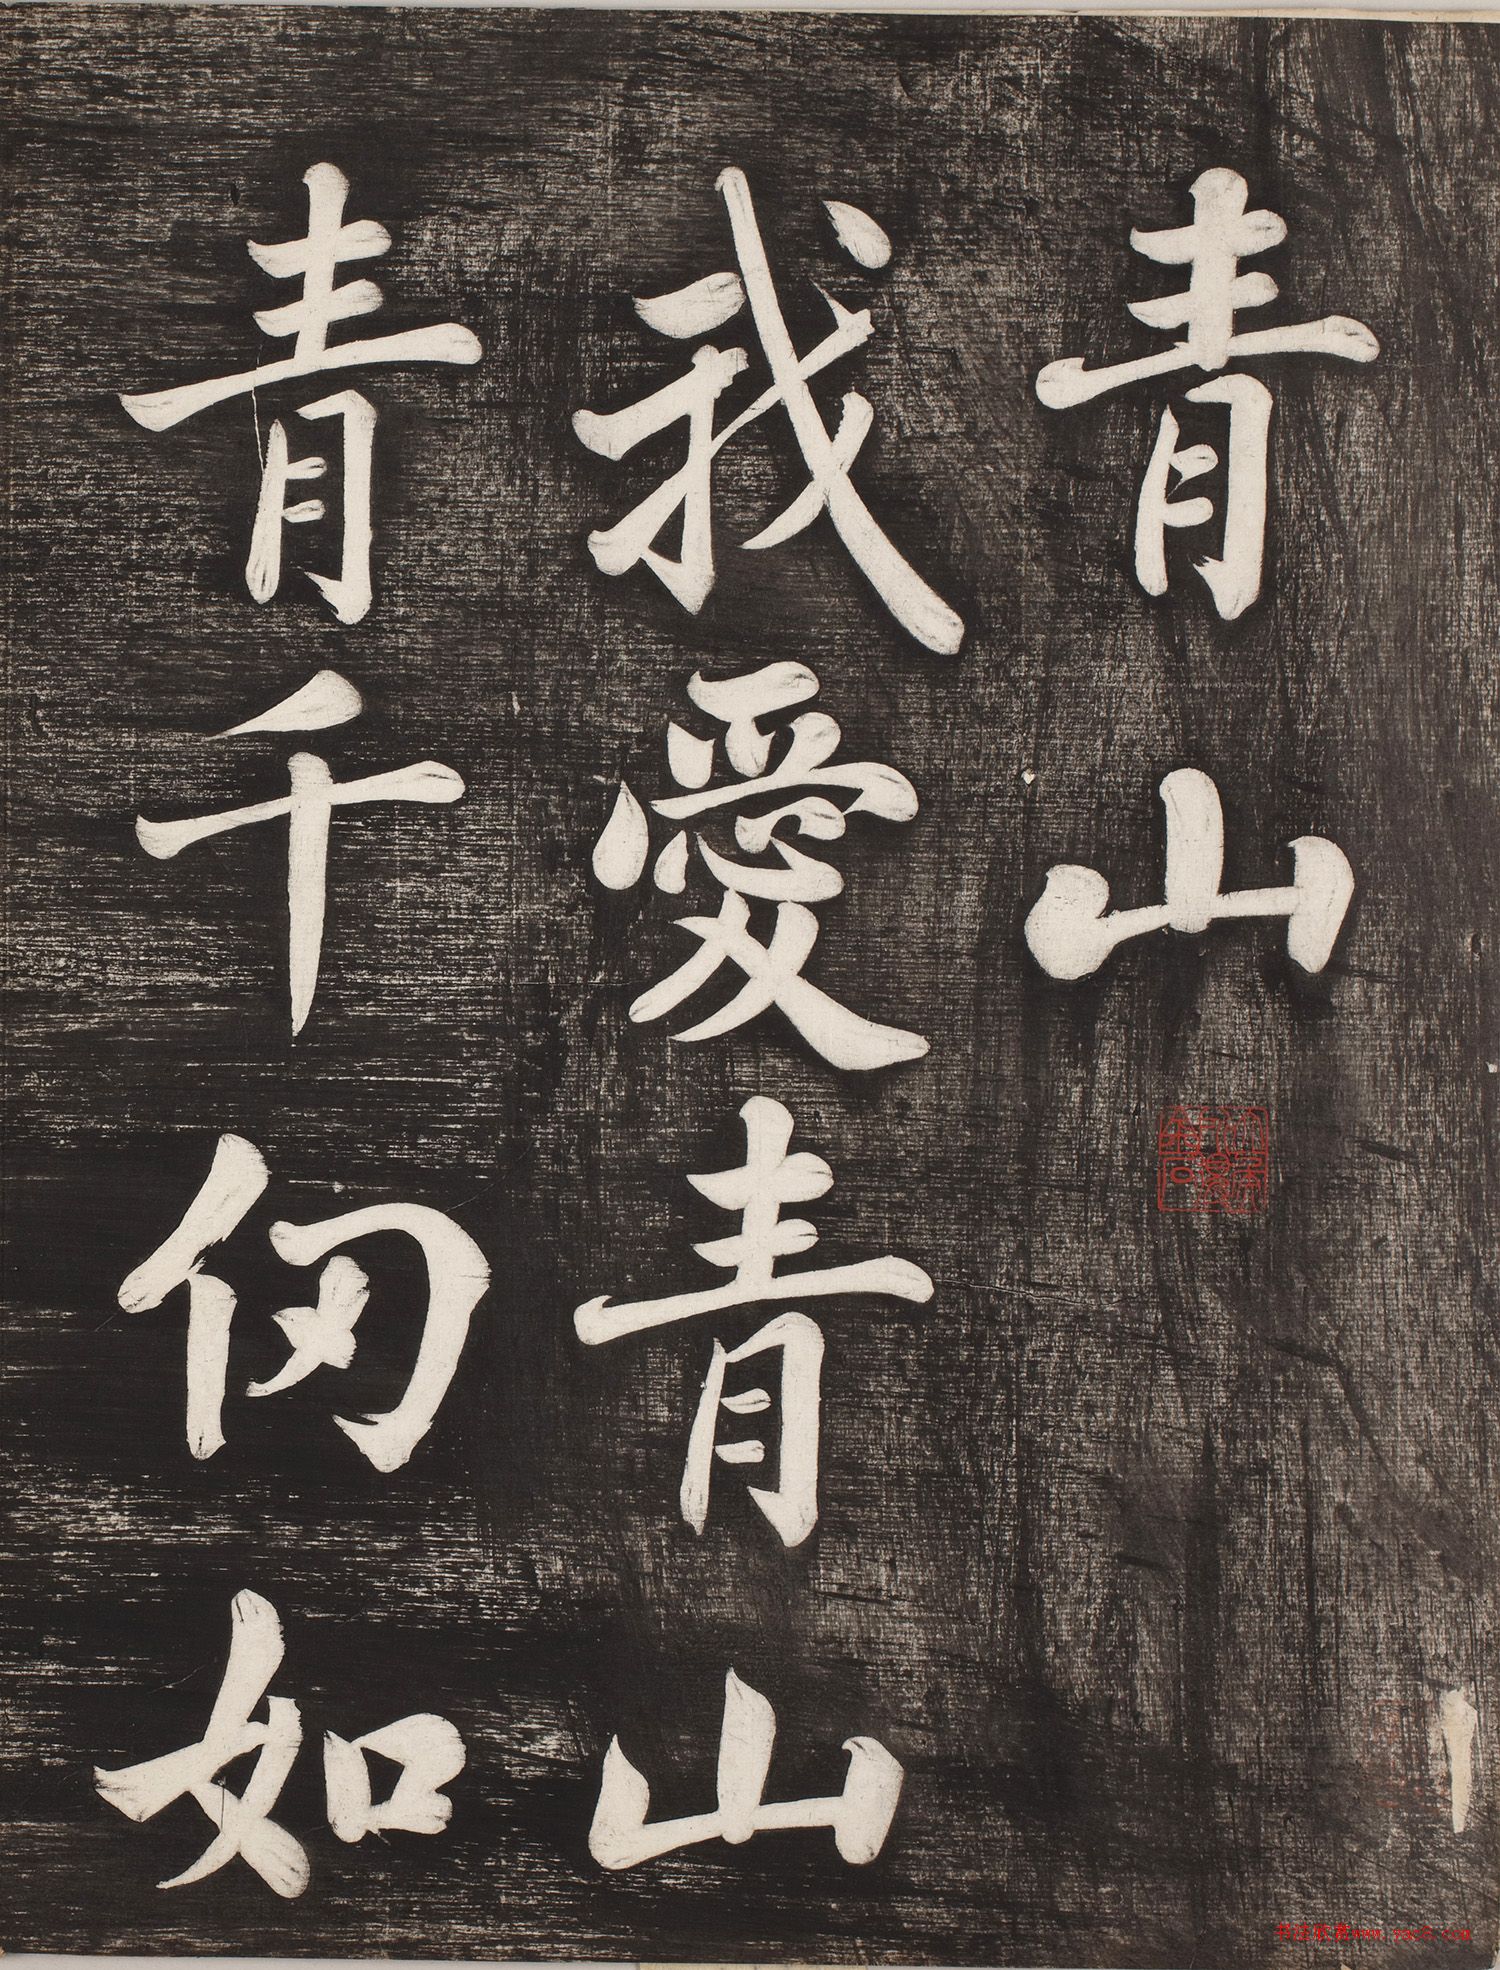 青山
我愛青山
青千仞如
书法欣赏www.yac8.com